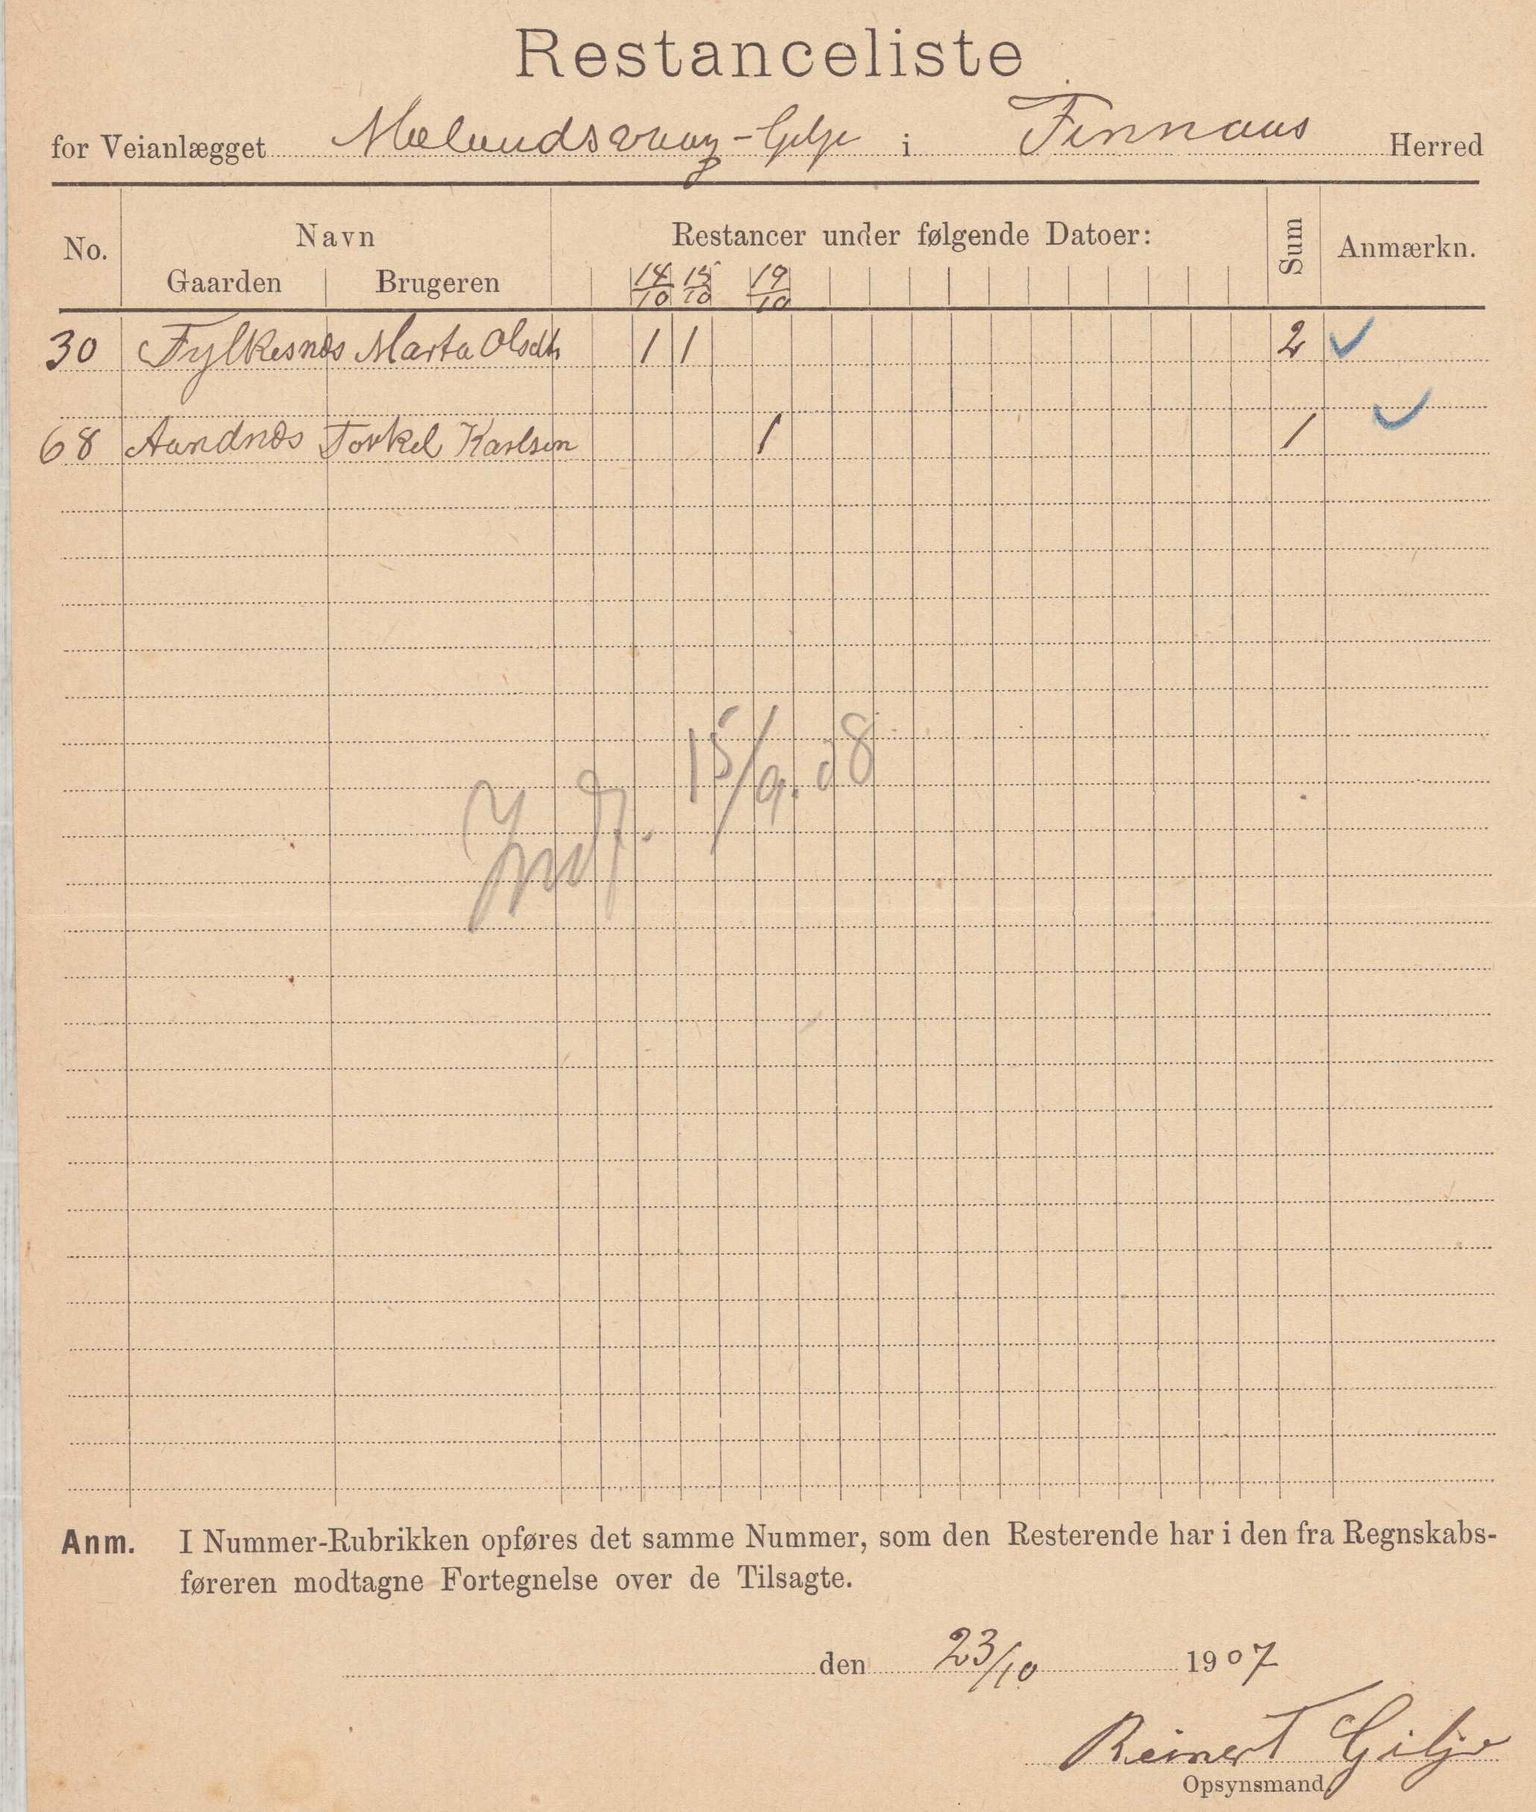 Restanceliste
for Veianlægget Mælandsvaag - Gilje i Finnaas Herred
No. Navn Restancer under følgende Datoer: Sum Anmærkn.
Gaarden Brugeren 14/10 15/10 19/10
30 Fylkesnes Marta Olsdtr 1 1 2 ✓
68 Aandnes Torkel Karlsen 1 1 ✓
Indf. 15/9. 08
Anm. I Nummer-Rubrikken opføres det samme Nummer, som den Resterende har i den fra Regnskabs-
føreren modtagne Fortegnelse over de Tilsagte.
den 23/10 1907
Reinert Gilje
Opsynsmand